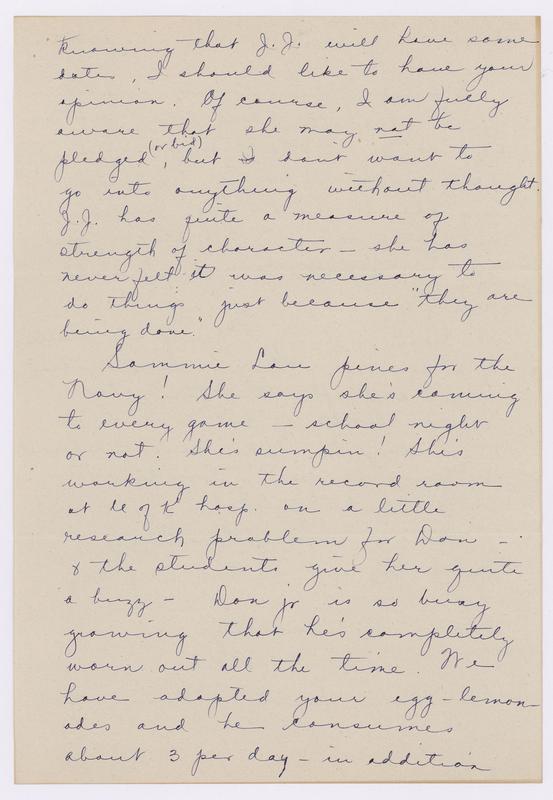 knowing that J.J. will have some
dates, I should like to have your
opinion. Of course, I am fully
aware that she may not be
pledged (or bid), but I don't want to
go into anything without thought.
J.J. has quite a measure of
strength of character - she has
never felt it was necessary to
do things just because "they are
being done."
Sammie Lou pines for the
Navy! She says she's coming
to every game - school night
or not. She's sumpin! She's
working in the record room
at U of K hosp. on a little
research problem for Don -
& the students give her quite
a buzz - Don jr is so busy
growing that he's completely
worn out all the time. We
have adopted your egg-lemon-
ades and he consumes
about 3 per day - in addition